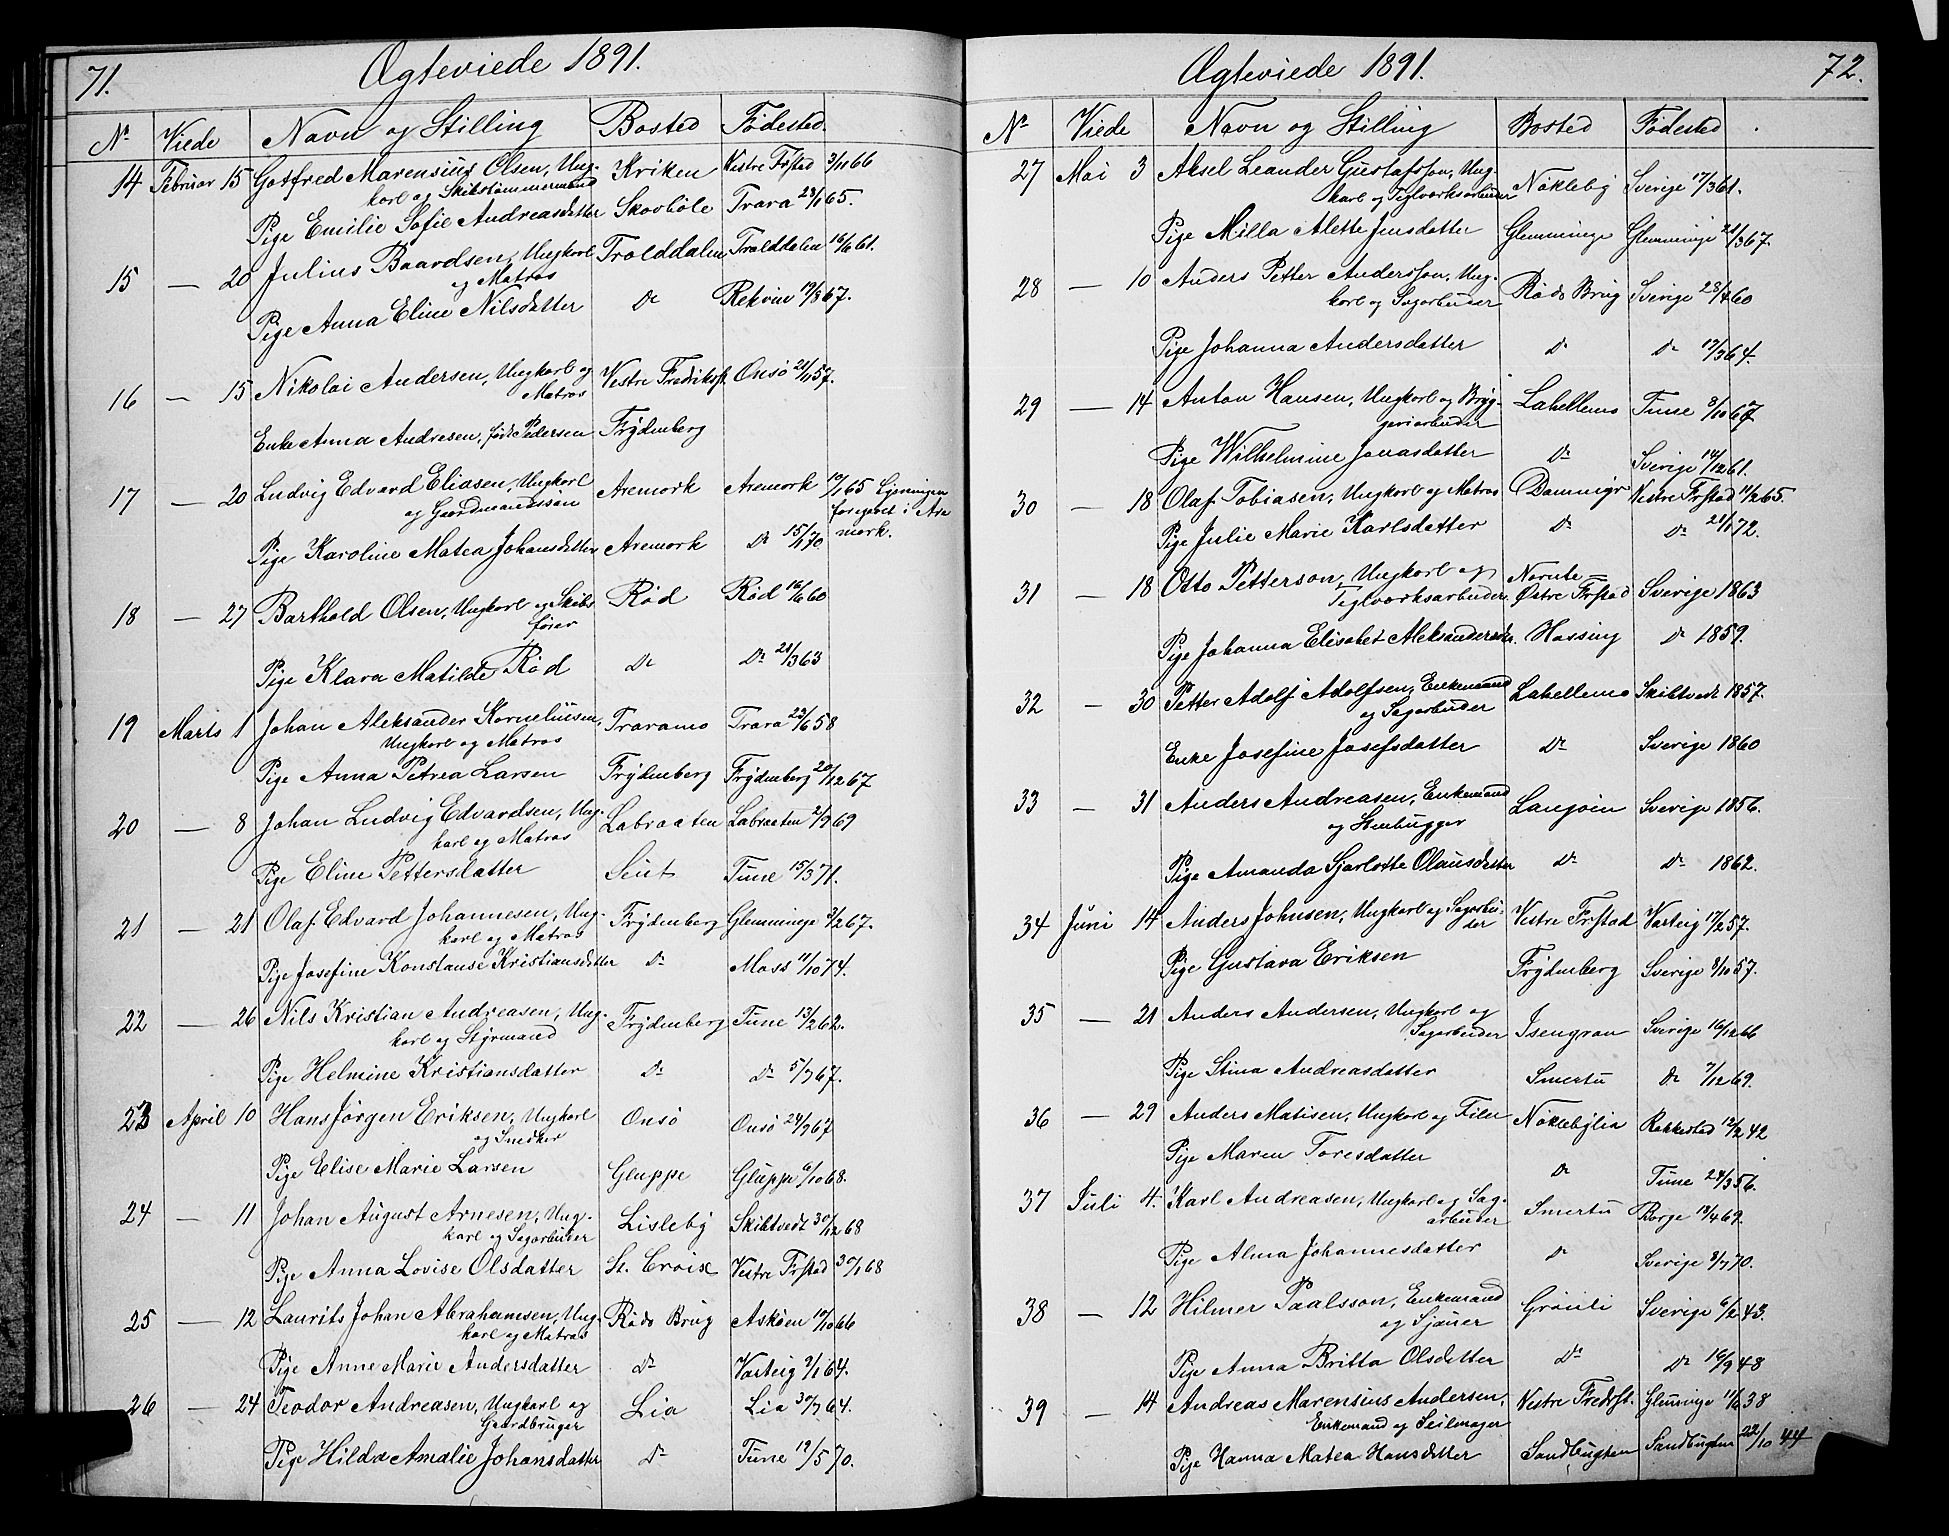 71.
Ægteviede 1891.
Nr Viede Navn og Stilling Bosted Fødested.
14 Februar 15 Gotfred Marensius Olsen, Ung- Kriken Vestre Frstad 3/11 66
karl og Skibstømmermand
Pige Emilie Sofie Andreasdatter Skovbøle Trara 22/1 65.
15 — 20 Julius Baardsen, Ungkarl Trolddalen Trolddalen 16/6 61.
og Matros
Pige Anna Eline Nilsdatter Do Rekvin 12/8 67.
16 — 15 Nikolai Andersen, Ungkarl og Vestre Fredriksst. Onsö 21/11 57.
Matros
Enke Anna Andresen, født Pedersen Frydenberg
17 — 20 Ludvig Edvard Eliasen, Ungkarl Aremark Aremark 12/1 65 Lysningen
og Gaardmandssøn foregaaet i Are
Pige Karoline Matea Johansdatter Aremark Do 15/11 70 mark.
18 — 27 Barthold Olsen, Ungkarl og Skibs Rød Rød 16/6 60
fører
Pige Klara Matilde Rød Do Do 21/3 63
19 Marts 1 Johan Aleksander Korneliusen, Traramo Trara 22/6 58
Ungkarl og Matros
Pige Anna Petrea Larsen Frydenberg Frydenberg 20/12 67
20 — 8 Johan Ludvig Edvardsen, Ung- Labraaten Labraaten 2/9 69
karl og Matros
Pige Eline Pettersdatter Seut Tune 15/3 71.
21 — 21 Olaf Edvard Johannesen, Ung- Frydenberg Glemminge 3/2 67.
karl og Matros
Pige Josefine Konstanse Kristiansdatter Do Moss 11/10 74.
22 — 26 Nils Kristian Andreasen, Ung- Frydenberg Tune 13/2 62.
karl og Styrmand
Pige Helmine Kristiansdatter Do Do 5/7 67.
23 April 10 Hans Jørgen Eriksen, Ungkarl Onsö Onsö 24/9 67
og Snedker
Pige Elise Marie Larsen Gluppe Gluppe 6/10 68.
24 — 11 Johan August Arnesen, Ung- Lisleby Skibtvedt 30/12 68
karl og Sagarbeider
Pige Anna Lovise Olsdatter St. Croix Vestre Frstad 30/1 68
25 — 12 Laurits Johan Abrahamsen, Ung- Røds Brug Askøen 12/10 66
karl og Matros
Pige Anne Marie Andersdatter Do Varteig 9/1 64.
26 — 24 Teodor Andreasen, Ungkarl og Lia Lia 30/7 64.
Gaardbruger
Pige Hilda Amalie Johansdatter Do Tune 19/5 70.
72.
Ægteviede 1891.
Nr Viede Navn og Stilling Bosted Fødested.
27 Mai 3 Aksel Leander Gustafsson, Ung- Nökleby Sverige 17/3 61.
karl og Teglverksarbeider
Pige Milla Alette Jensdatter Glemminge Glemminge 21/3 67.
28 — 10 Anders Petter Andersson, Ung- Røds Brug Sverige 28/4 60
karl og Sagarbeider
Pige Johanna Andersdatter Do Do 17/3 64.
29 — 14 Anton Hansen, Ungkarl og Bryg- Lahellemo Tune 8/10 67
geriarbeider
Pige Wilhelmine Jonasdatter Do Sverige 14/12 61.
30 — 18 Olaf Tobiasen, Ungkarl og Matros Dammyr Vestre Frstad 11/2 65.
Pige Julie Marie Karlsdatter Do Do 21/1 72.
31 — 18 Otto Petterson, Ungkarl og Norute
Teglverksarbeider Østre Frstad Sverige 1863
Pige Johanna Elisabet Aleksandersdr. Hassing Do 1859.
32 — 30 Petter Adolf Adolfsen, Enkemand Lahellemo Skibtvedt 1857.
og Sagarbeider
Enke Josefine Josefsdatter Do Sverige 1860
33 — 31 Anders Andreasen, Enkemand Langøien Sverige 1856.
og Stenhugger
Pige Amanda Sjarlotte Olausdatter Do Do 1862.
34 Juni 14 Anders Johnsen, Ungkarl og Sagarbei- Vestre Frstad Varteig 17/2 57.
der
Pige Gustava Eriksen Frydenberg Sverige 8/10 57.
35 — 21 Anders Andersen, Ungkarl og Isengran Sverige 16/12 66
Sagarbeider
Pige Stina Andreasdatter Smertu Do 7/12 69.
36 — 29 Anders Matisen, Ungkarl og Filer Nöklebylia Rakkestad 12/2 42
Pige Maren Toresdatter Do Tune 28/3 56.
37 Juli 4. Karl Andreasen, Ungkarl og Sag- Smertu Borge 19/4 69.
arbeider
Pige Alma Johannesdatter Do Sverige 8/7 70.
38 — 12 Hilmer Paalsson, Enkemand Grönli Sverige 6/2 43.
og Sjauer
Pige Anna Britta Olsdatter Do Do 16/9 48
39 — 14 Andreas Marensius Andersen, Vestre Fredrst. Glemminge 11/6 38
Enkemand og Seilmager
Pige Hanna Matea Hansdatter Sandbugten Sandbugten 22/10 44